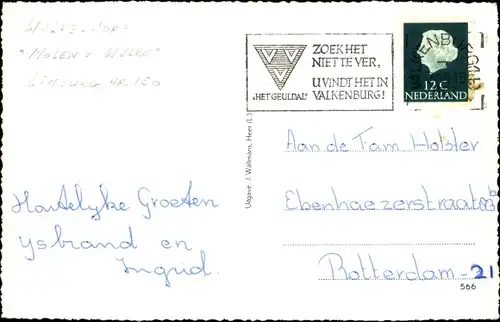 "MOLEN V WYLRE"
LIMBURG NR. 150
ZOEK HET
NIET TE VER,
U VINDT HET IN
VALKENBURG!
„HET GEULDAL"
VALKENBURG
12 C
NEDERLAND
Uitgave: J. Waltmans, Heer (L.)
Aan de Fam Holster
Ebenhaezerstraat 83 b
Rotterdam-21
566
Hartelyke Groeten
ysbrand en
Ingrid.